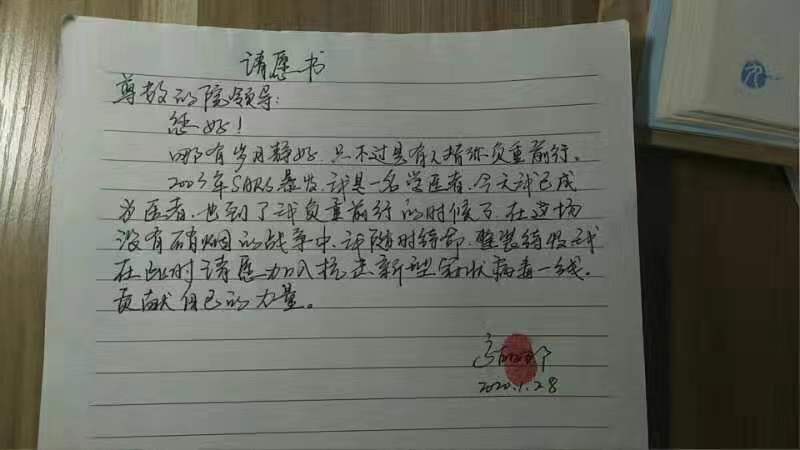 请愿书
尊敬的院领导：
您好！
哪有岁月静好，只不过是有人替你负重前行。
2003年SARS暴发，我是一名学医者，今天我已成
为医者，也到了我负重前行的时候了，在这场
没有硝烟的战争中，我随时待命，整装待发，我
在此时请愿加入抗击新型冠状病毒一线。
贡献自己的力量。
2020.1.28